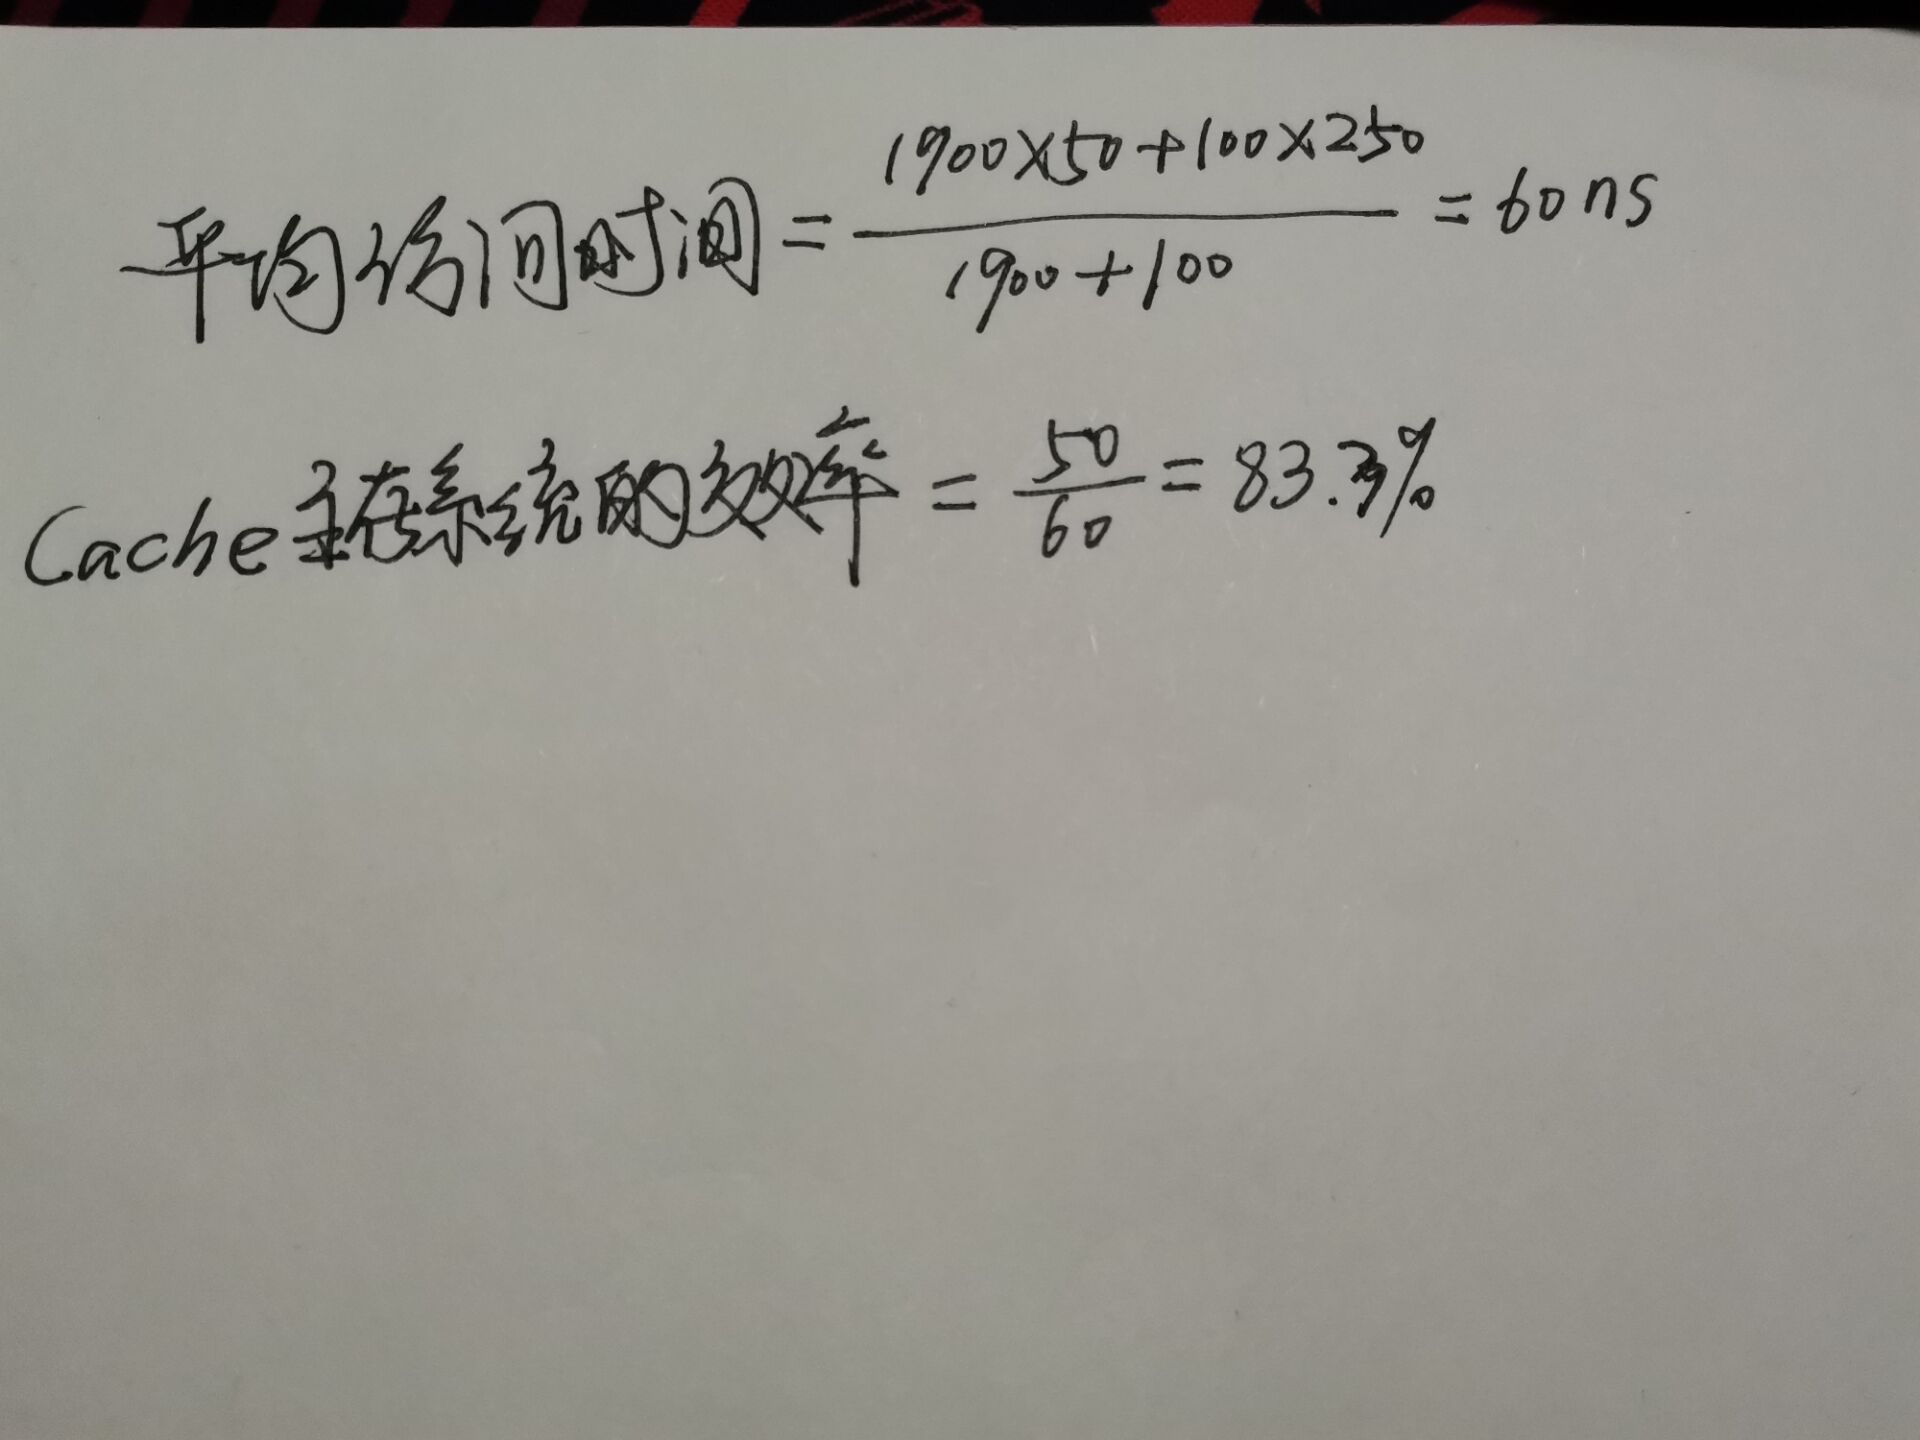 平均访问时间 = (1900×50+100×250)/(1900+100) = 60ns
Cache主存系统的效率 = 50/60 = 83.3%